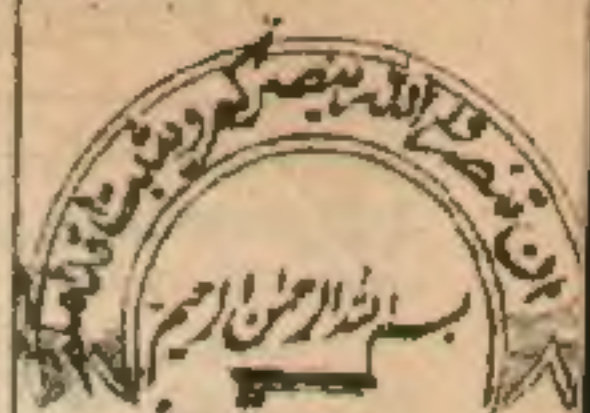 ان تنصروا الله ينصركم ويثبت اقدامكم
بسم الله الرحمن الرحيم